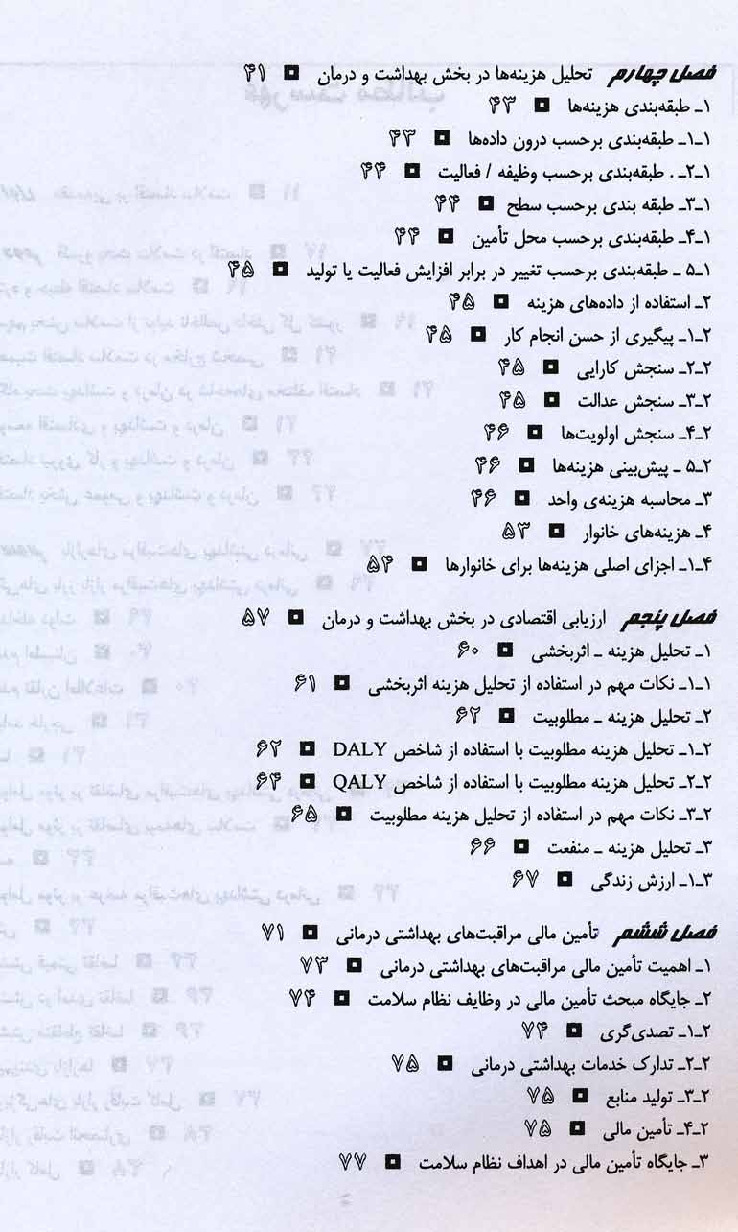 فصل چهارم تحلیل هزینه‌ها در بخش بهداشت و درمان ◘ ۴۱
۱ـ طبقه‌بندی هزینه‌ها ◘ ۴۳
۱ـ۱ـ طبقه‌بندی برحسب درون داده‌ها ◘ ۴۳
۱ـ۲ـ . طبقه‌بندی برحسب وظیفه / فعالیت ◘ ۴۴
۱ـ۳ـ طبقه بندی برحسب سطح ◘ ۴۴
۱ـ۴ـ طبقه‌بندی برحسب محل تأمین ◘ ۴۴
۱ـ۵ ـ طبقه‌بندی برحسب تغییر در برابر افزایش فعالیت یا تولید ◘ ۴۵
۲ـ استفاده از داده‌های هزینه ◘ ۴۵
۲ـ۱ـ پیگیری از حسن انجام کار ◘ ۴۵
۲ـ۲ـ سنجش کارایی ◘ ۴۵
۲ـ۳ـ سنجش عدالت ◘ ۴۵
۲ـ۴ـ سنجش اولویت‌ها ◘ ۴۶
۲ـ۵ ـ پیش‌بینی هزینه‌ها ◘ ۴۶
۳ـ محاسبه هزینه‌ی واحد ◘ ۴۶
۴ـ هزینه‌های خانوار ◘ ۵۳
۴ـ۱ـ اجزای اصلی هزینه‌ها برای خانوارها ◘ ۵۴
فصل پنجم ارزیابی اقتصادی در بخش بهداشت و درمان ◘ ۵۷
۱ـ تحلیل هزینه ـ اثربخشی ◘ ۶۰
۱ـ۱ـ نکات مهم در استفاده از تحلیل هزینه اثربخشی ◘ ۶۱
۲ـ تحلیل هزینه ـ مطلوبیت ◘ ۶۲
۲ـ۱ـ تحلیل هزینه مطلوبیت با استفاده از شاخص DALY ◘ ۶۲
۲ـ۲ـ تحلیل هزینه مطلوبیت با استفاده از شاخص QALY ◘ ۶۴
۲ـ۳ـ نکات مهم در استفاده از تحلیل هزینه مطلوبیت ◘ ۶۵
۳ـ تحلیل هزینه ـ منفعت ◘ ۶۶
۳ـ۱ـ ارزش زندگی ◘ ۶۷
فصل ششم تأمین مالی مراقبت‌های بهداشتی درمانی ◘ ۷۱
۱ـ اهمیت تأمین مالی مراقبت‌های بهداشتی درمانی ◘ ۷۳
۲ـ جایگاه مبحث تأمین مالی در وظایف نظام سلامت ◘ ۷۴
۲ـ۱ـ تصدی‌گری ◘ ۷۴
۲ـ۲ـ تدارک خدمات بهداشتی درمانی ◘ ۷۵
۲ـ۳ـ تولید منابع ◘ ۷۵
۲ـ۴ـ تأمین مالی ◘ ۷۵
۳ـ جایگاه تأمین مالی در اهداف نظام سلامت ◘ ۷۷